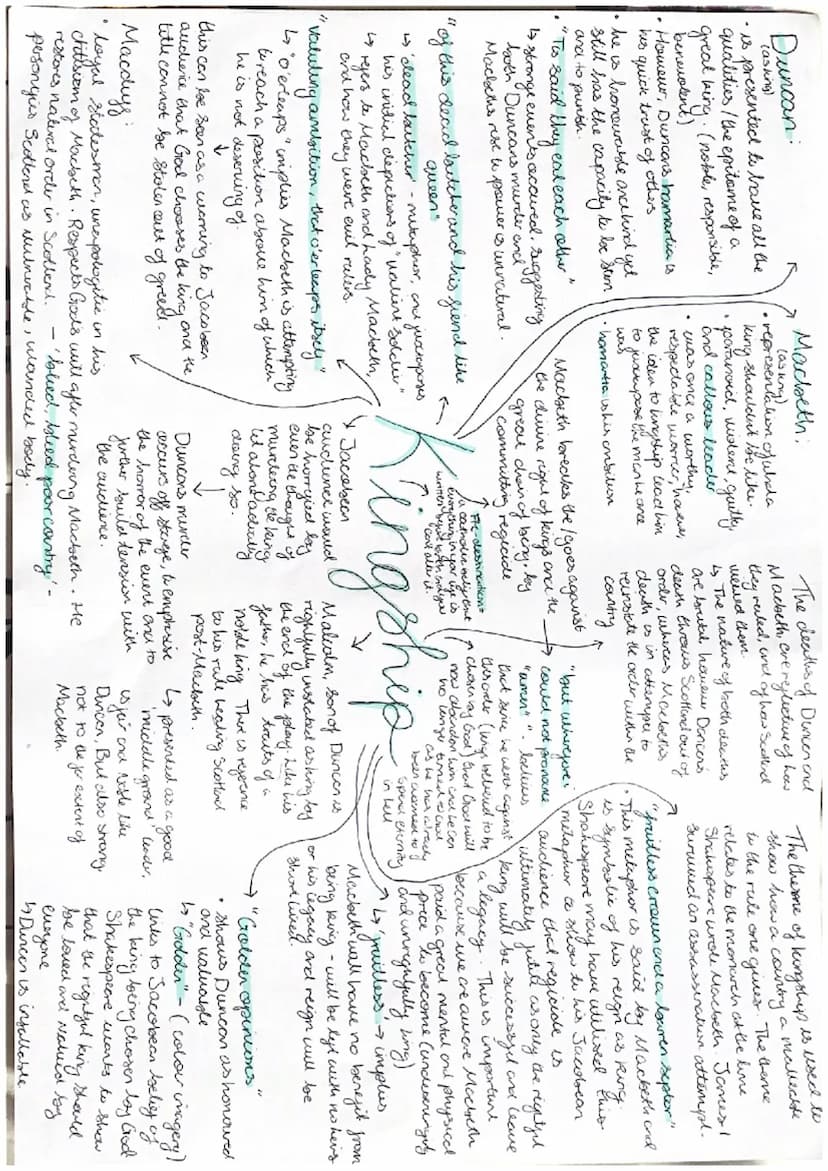 Duncan:
(as king)
• is presented to have all the
qualities / the epitome of a
great king. (noble, responsible,
benevolent)
• However, Duncans hamartia is
his quick trust of others
• he is honourable and kind yet
still has the capacity to be stern
and to punish.
• "Tis said they eat each other"
↳ strange events occured, suggesting
both Duncans murder and
Macbeths rise to power is unnatural.
"of this dead butcher and his fiend like
queen"
↳ 'dead butcher' - metaphor, and juxtaposes
his initial depictions of "valiant soldier"
↳ refers to Macbeth and Lady Macbeth,
and how they were evil rulers.
"Vaulting ambition, that o'erleaps itself"
↳ "o'erleaps" implies Macbeth is attempting
to reach a position above him of which
he is not deserving of.
↓
this can be seen as a warning to Jacobean
audience that God chooses the king and the
title cannot be stolen out of greed.
Macduff:
• loyal Statesman, unapologetic in his
criticism of Macbeth. Respects Gods will after murdering Macbeth. He
restores natural order in Scotland. - 'bleed, bleed poor country' -
personifies Scotland as vulnerable, wounded body
Macbeth:
(as king)
• representation of what a
king shouldnt be like.
• paranoid, violent, guilty,
and callous leader
• was once a worthy,
respectable warrior, however,
the idea to kingship lead him
to juxtapose the man he once
was
• hamartia is his ambition
Macbeth breaches the/goes against
the divine right of kings and the
great chain of being, by
committing regicide
Pre-destination
a catholic belief that
everything in your life is
written by God and only
God can alter it.
Kingship
↳ Jacobean
audiences would
be horrified by
even the thought of
murdering the king
let alone actually
doing so.
↓
Duncans murder
occurs off stage, to emphasise
the horror of the event and to
further build tension with
the audience.
The deaths of Duncan and
Macbeth are reflective of how
they ruled, and of how Scotland
viewed them.
↳ The nature of both deaths
are brutal, however Duncans
death throws Scotland out of
order, whereas Macbeths
death is in attempt to
reinstate the order within the
country
"but wherefore
could not pronounce
"amen"" - believes
that since he went against
this order (kings believed to be
chosen by God) that God will
now abandon him and he can
no longer turn to God
as he has already
been condemned to
spend eternity
in hell
Malcolm, son of Duncan is
rightfully instated as king by
the end of the play. Like his
father, he has traits of a
noble king. There is reference
to his rule leading Scotland
post-Macbeth.
↳ presented as a good
'middle ground' leader,
is fair and noble like
Duncan, But also strong
not to the far extent of
Macbeth.
The theme of kingship is used to
show how a country is reflected
to the rule one gives. The theme
relates to the monarch at the time
Shakespeare wrote Macbeth. James I
survived an assassination attempt.
• "fruitless crown and a barren scepter"
• This metaphor is said by Macbeth and
is symbolic of his reign as king.
Shakespeare may have utilised this
metaphor to show to his Jacobean
audience that regicide is
ultimately futile as only the rightful
king will be successful and leave
a legacy. This is important
because we are aware Macbeth
paid a great mental and physical
price to become (undeservingly
and wrongfully king)
↳ 'fruitless' → implies
Macbeth will have no benefit from
being king - will be left with no heirs
or his legacy and reign will be
short lived.
"Golden opinions"
• shows Duncan as honored
and valuable
↳ "Golden" - (colour imagery)
links to Jacobean belief of
the king being chosen by God
Shakespeare wants to show
that the rightful king should
be loved and valued by
everyone
↳ Duncan is infallible